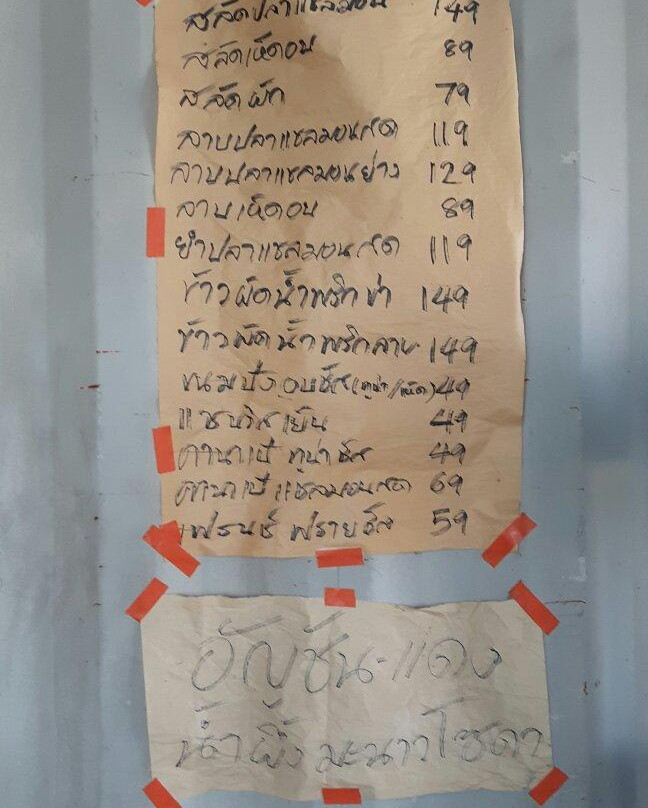 สลัดปลาแซลมอน 149
สลัดเห็ดอบ 89
สลัดผัก 79
ลาบปลาแซลมอนสด 119
ลาบปลาแซลมอนย่าง 129
ลาบเห็ดอบ 89
ยำปลาแซลมอนสด 119
ข้าวผัดน้ำพริกข่า 149
ข้าวผัดน้ำพริกลาบ 149
ขนมปังอบชีส (ทูน่า/เห็ด) 49
แซนวิสเย็น 49
คานาเป้ ทูน่าชีส 49
คานาเป้ แซลมอนสด 69
เฟรนช์ ฟรายชีส 59
อัญชัน-แดง
น้ำผึ้งมะนาวโซดา